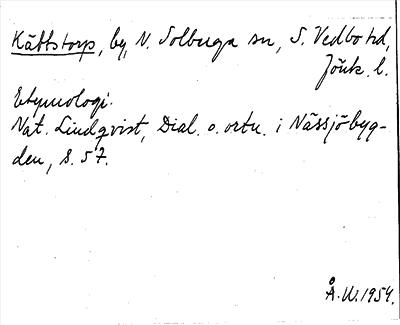 Kättstorp, by, N. Solberga sn, S. Vedbo hd,
Jönk. l.
Etymologi.
Nat. Lindqvist, Dial. o. ortn. i Nässjöbyg-
den, s. 57.
Å. W. 1954.